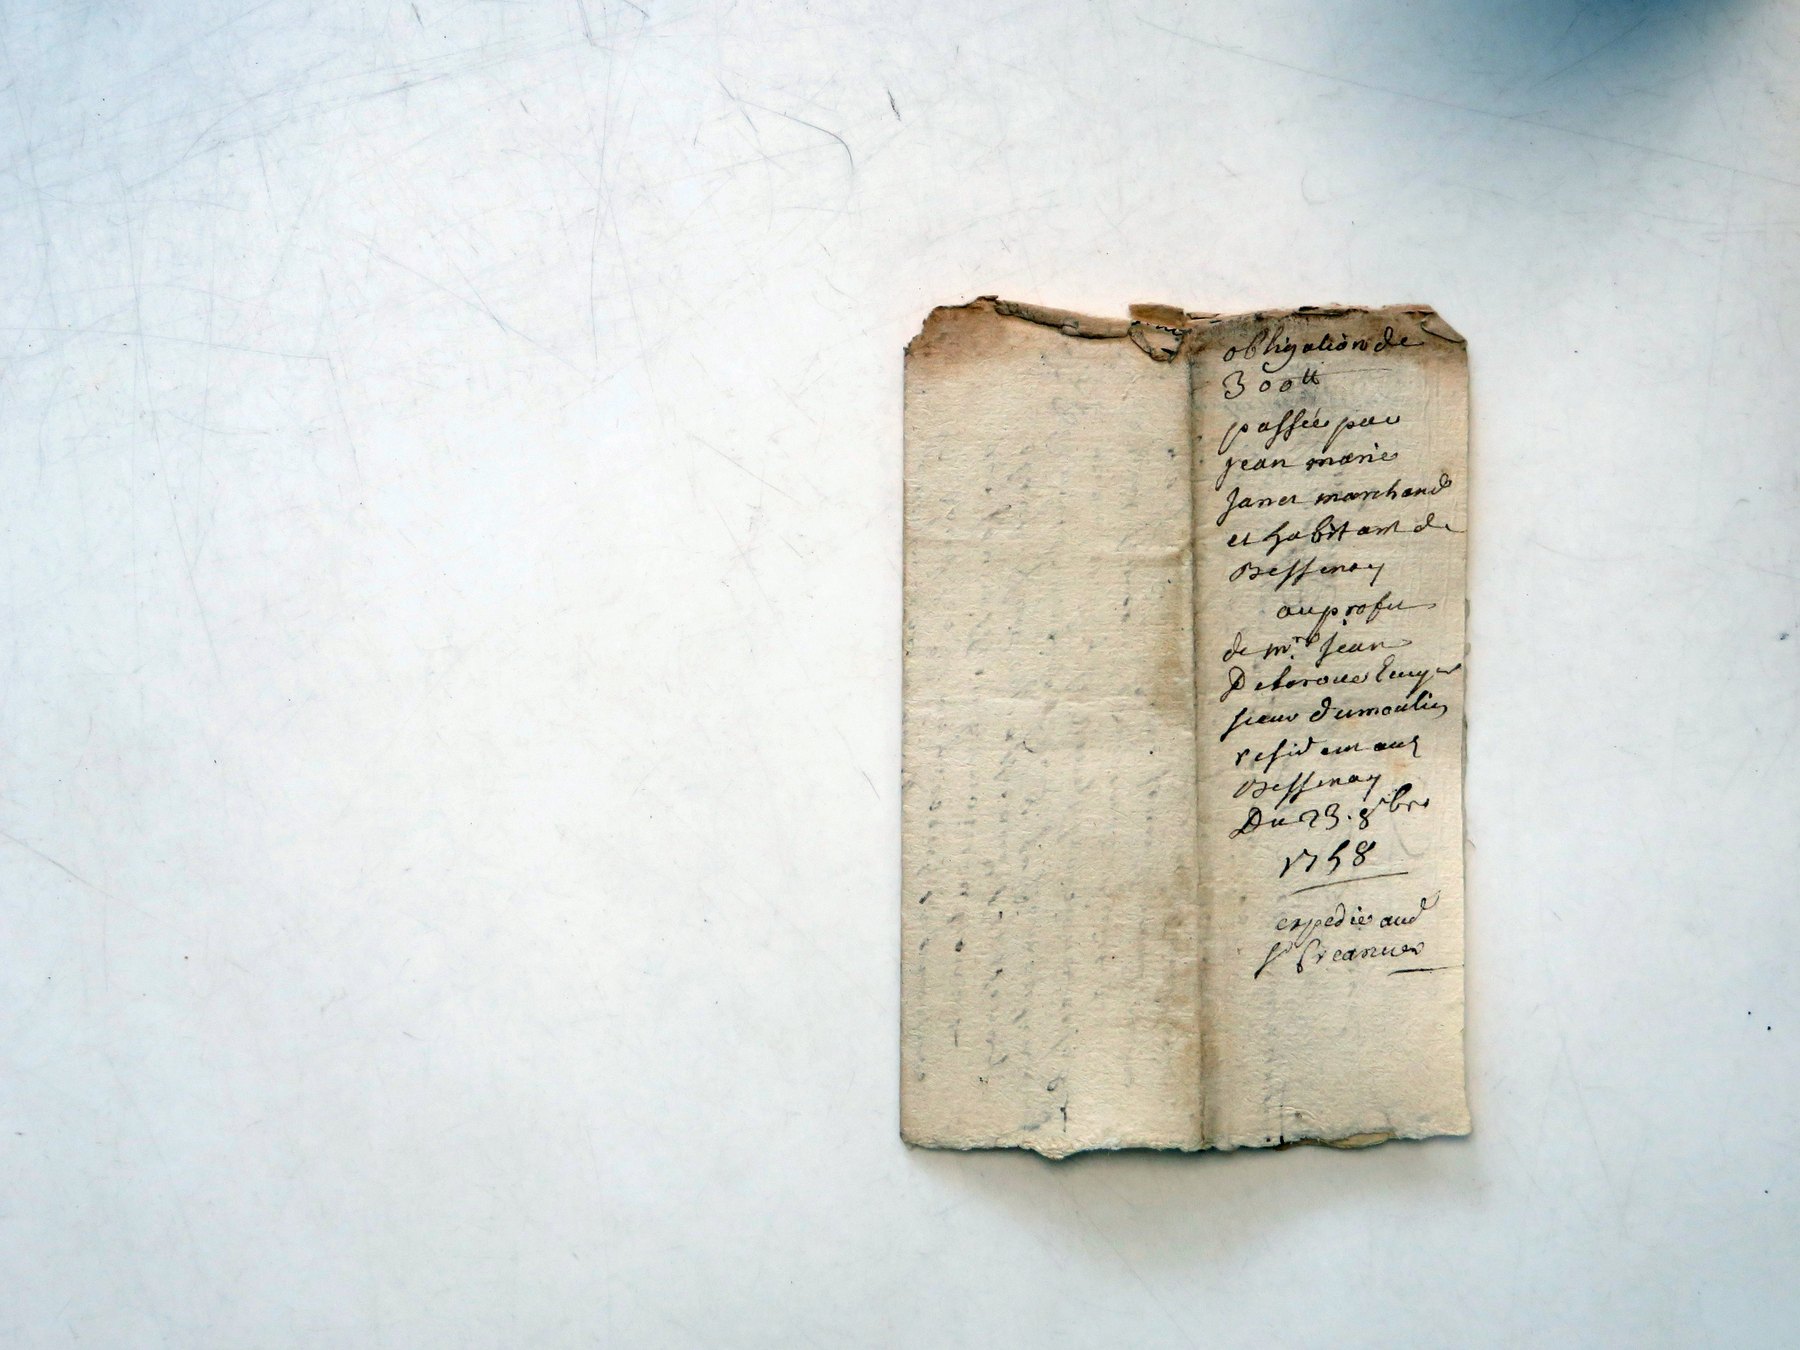 obligation de
300tt
passée par
jean marie
Janet marchand
et habitant de
Bessenay
au profit
de mr. Jean
Delaroue Ecuyer
sieur dumoulin
resident aud
Bessenay
Du 23. 8bre
1758
expedié aud
sr creancier